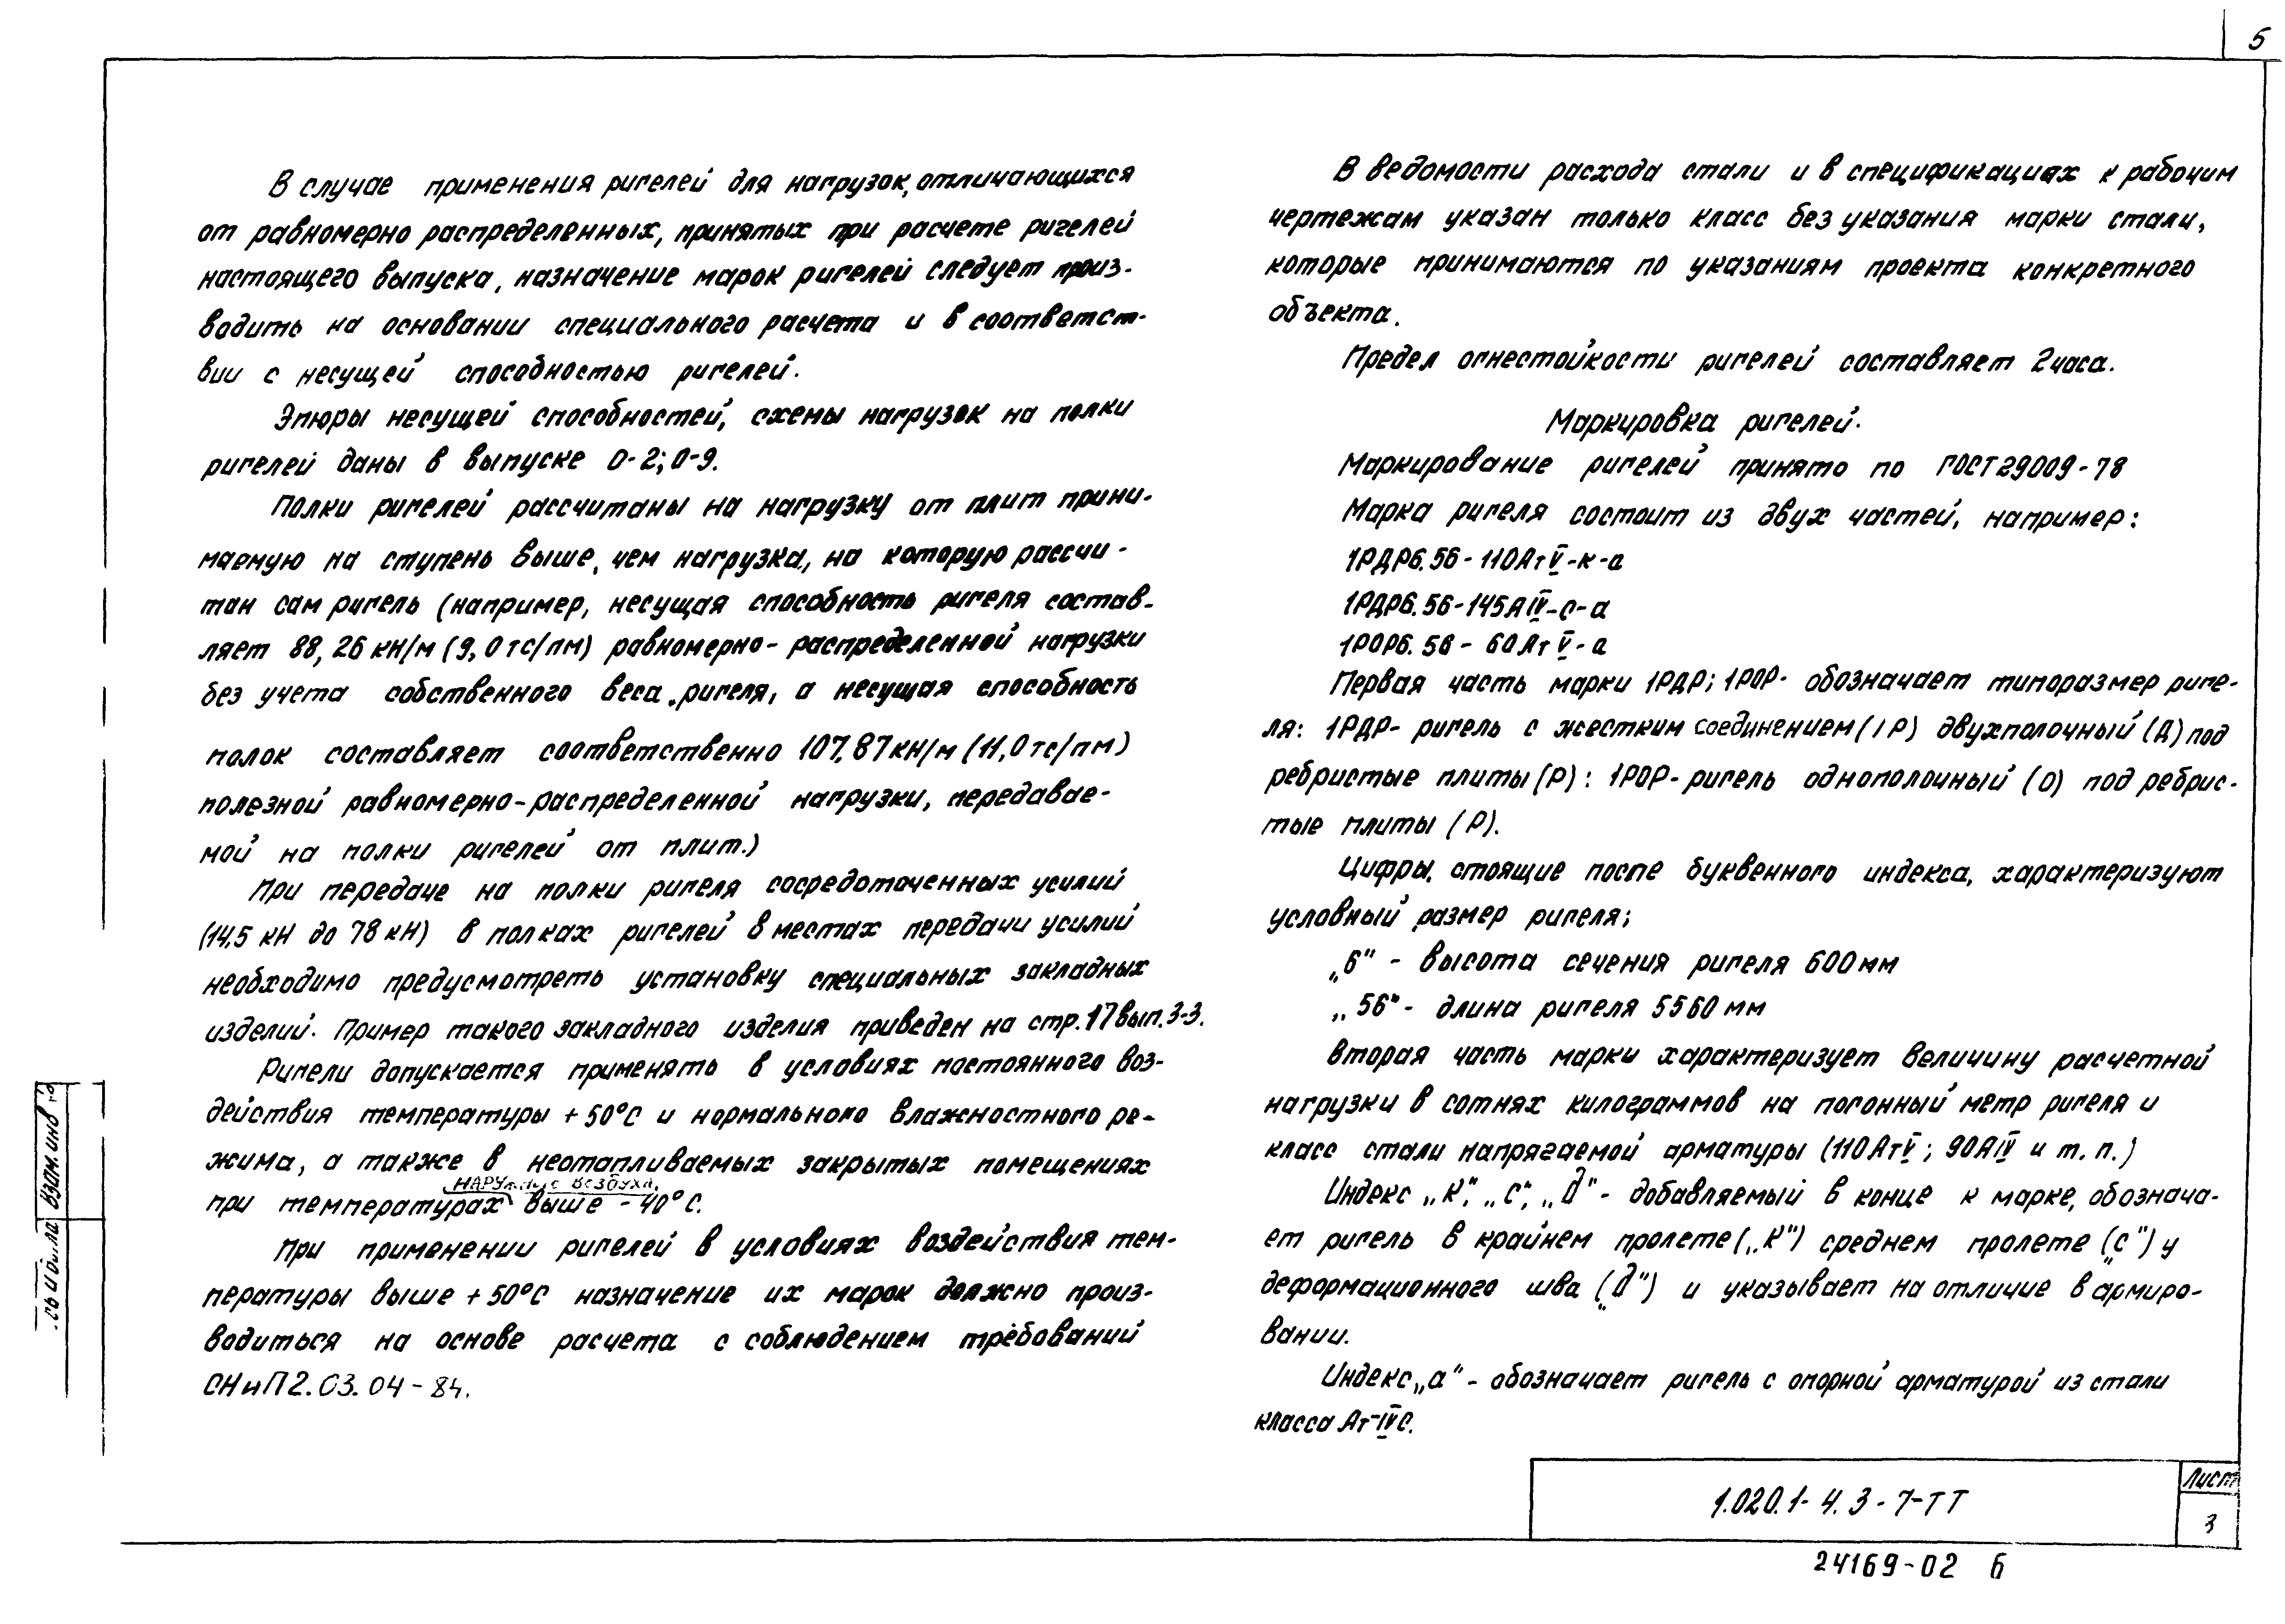 5
В случае применения ригелей для нагрузок, отличающихся
от равномерно распределенных, принятых при расчете ригелей
настоящего выпуска, назначение марок ригелей следует произ-
водить на основании специального расчета и в соответст-
вии с несущей способностью ригелей.
Эпюры несущей способностей, схемы нагрузок на полки
ригелей даны в выпуске 0-2; 0-9.
Полки ригелей рассчитаны на нагрузку от плит прини-
маемую на ступень выше, чем нагрузка, на которую рассчи-
тан сам ригель (например, несущая способность ригеля состав-
ляет 88,26 кН/м (9,0 тс/пм) равномерно-распределенной нагрузки
без учета собственного веса ригеля, а несущая способность
полок составляет соответственно 107,87 кН/м (11,0 тс/пм)
полезной равномерно-распределенной нагрузки, передавае-
мой на полки ригелей от плит.)
При передаче на полки ригеля сосредоточенных усилий
(14,5 кН до 78 кН) в полках ригелей в местах передачи усилий
необходимо предусмотреть установку специальных закладных
изделий. Пример такого закладного изделия приведен на стр. 17 вып. 3-3.
Ригели допускается применять в условиях постоянного воз-
действия температуры +50°С и нормального влажностного ре-
жима, а также в неотапливаемых закрытых помещениях
при температурах наружнего воздуха, выше -40°С.
При применении ригелей в условиях воздействия тем-
пературы выше +50°С назначение их марок должно произ-
водиться на основе расчета с соблюдением требований
СНиП 2.03.04-84.
В ведомости расхода стали и в спецификациях к рабочим
чертежам указан только класс без указания марки стали,
которые принимаются по указаниям проекта конкретного
объекта.
Предел огнестойкости ригелей составляет 2 часа.
Маркировка ригелей.
Маркирование ригелей принято по ГОСТ 29009-78
Марка ригеля состоит из двух частей, например:
1РДР6.56-110АтV-к-а
1РДР6.56-145АIV-с-а
1РОР6.56-60АтV-а
Первая часть марки 1РДР; 1РОР- обозначает типоразмер риге-
ля: 1РДР- ригель с жестким соединением (1Р) двухполочный (Д) под
ребристые плиты (Р): 1РОР- ригель однополочный (О) под ребрис-
тые плиты (Р).
Цифры, стоящие после буквенного индекса, характеризуют
условный размер ригеля;
„6" - высота сечения ригеля 600 мм
„56" - длина ригеля 5560 мм
Вторая часть марки характеризует величину расчетной
нагрузки в сотнях килограммов на погонный метр ригеля и
класс стали напрягаемой арматуры (110АтV; 90АIV и т. п.)
Индекс „К", „С", „д" - добавляемый в конце к марке, обознача-
ет ригель в крайнем пролете („К") среднем пролете („с") у
деформационного шва („д") и указывает на отличие в армиро-
вании.
Индекс „а" - обозначает ригель с опорной арматурой из стали
класса Ат-IVС.
1.020.1-4.3-7-ТТ
Лист
3
24169-02 6
Взам. инв